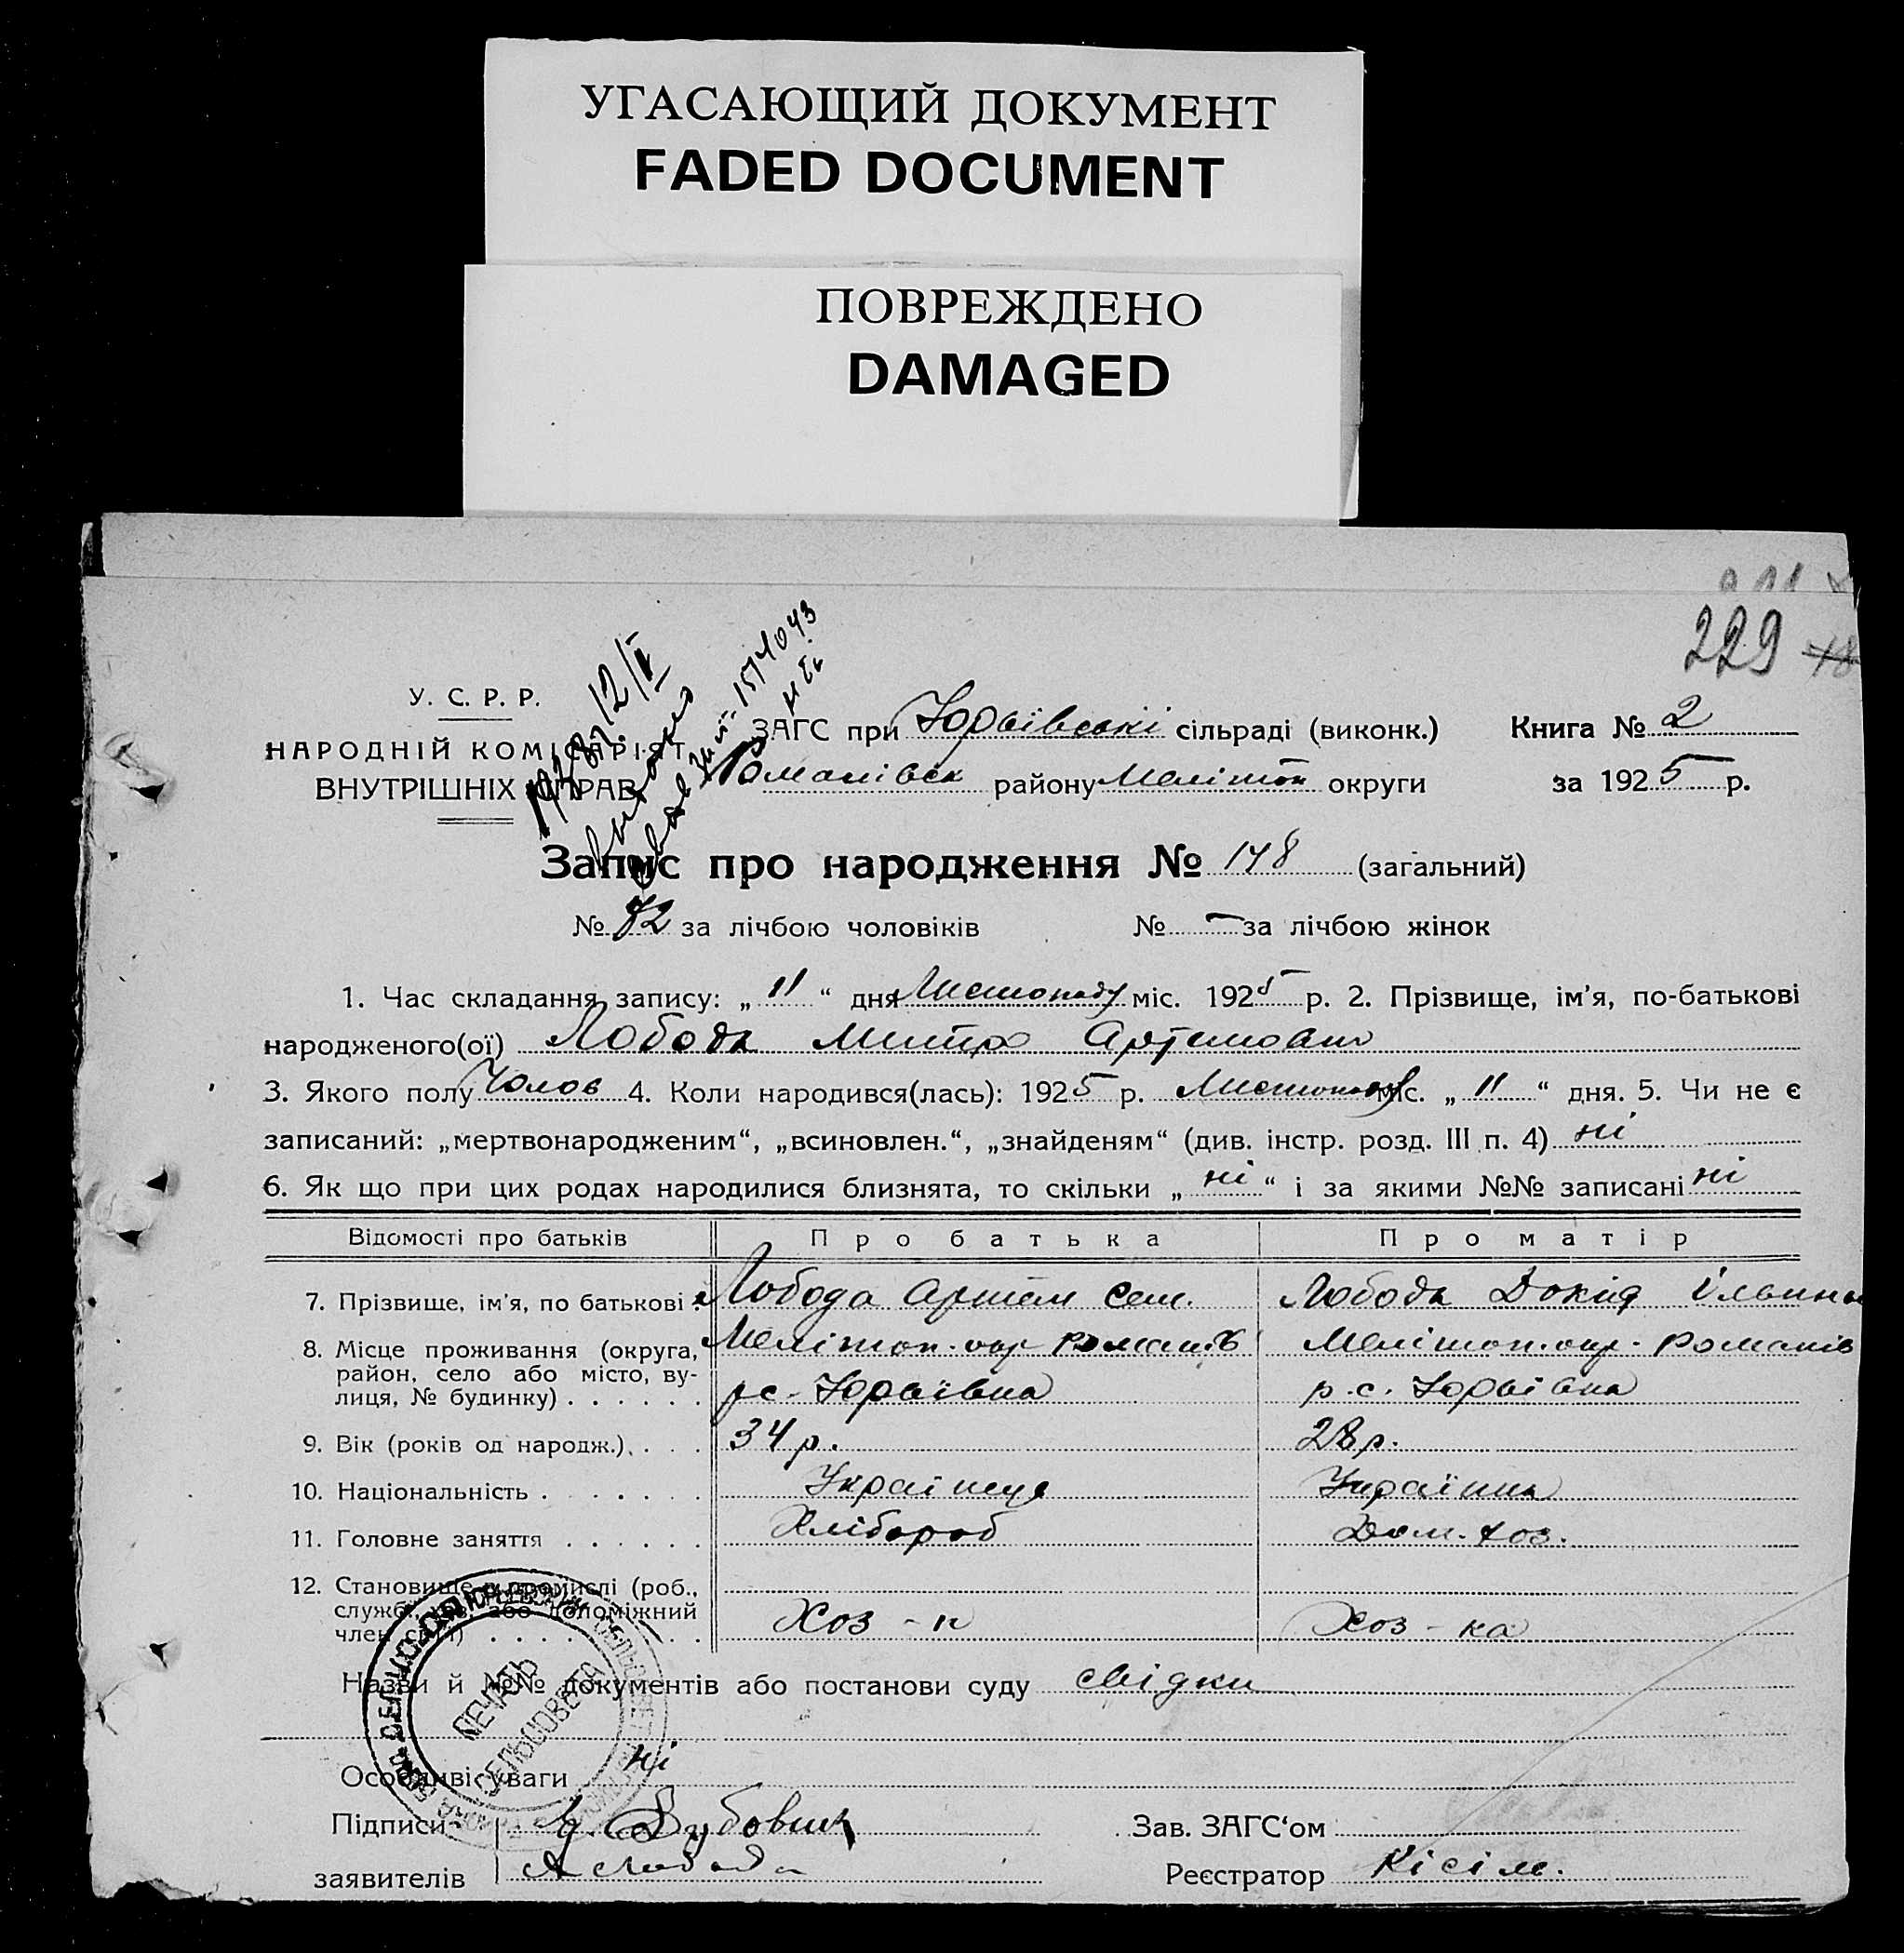 УГАСАЮЩИЙ ДОКУМЕНТ
FADED DOCUMENT
ПОВРЕЖДЕНО
DAMAGED
229
У. С. Р. Р.
НАРОДНІЙ КОМІСАРІЯТ
ВНУТРІШНІХ СПРАВ
ЗАГС при Юрьївські сільраді (виконк.) Книга № 2
Романівск району Меліт округи за 1925 р.
Запис про народження № 148 (загальний)
№ 72 за лічбою чоловіків № – за лічбою жінок
1. Час складання запису: „ 11 “ дня Листопаду міс. 1925 р. 2. Прізвище, ім’я, по-батькові
народженого(ої) Лобода Митро Артемович
3. Якого полу Чолов 4. Коли народився(лась): 1925 р. Листопаду міс. „ 11 “ дня. 5. Чи не є
записаний: „мертвонародженим“, „всиновлен.“, „знайденям“ (див. інстр. розд. III п. 4) ні
6. Як що при цих родах народилися близнята, то скільки „ ні “ і за якими №№ записані ні
Відомості про батьків Про батька Про матір
7. Прізвище, ім’я, по батькові . Лобода Артем Сем. Лобода Докид Ільинн
8. Місце проживання (округа, Мелітоп. окр Романів Мелітоп. окр. Романів
район, село або місто, ву-
лиця, № будинку) . . . . . . рс. Юрьївка р. с. Юрьівка
9. Вік (років од народж.) . . . 34 р. 28 р.
10. Національність . . . . . Українець Українка
11. Головне заняття . . . . . . Хлібороб Дом. хоз.
12. Становище в промислі (роб.,
служб., хаз. або допоміжний
член сім'ї) . . . . . . . . Хоз - н Хоз - ка
ПЕЧАТЬ
СЕЛЬСОВЕТА
Назви й №№ документів або постанови суду свідки
Особливі уваги ні
Підписи Зубовик Зав. ЗАГС‘ом
заявителів А Лобода Реєстратор Кісіль.